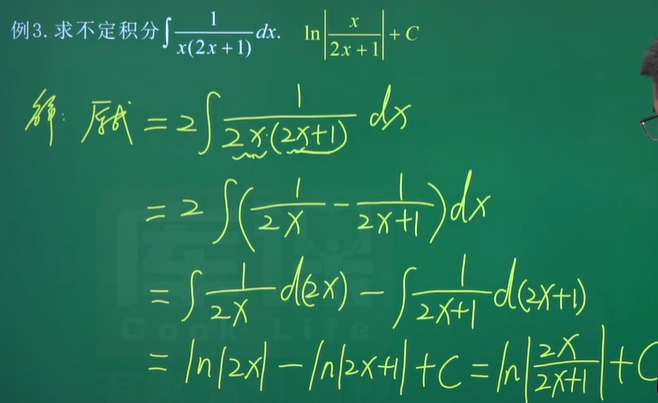 例3. 求不定积分∫ 1/(x(2x+1)) dx. ln|x/(2x+1)| + C
解: 原式 = 2∫ 1/(2x·(2x+1)) dx
= 2∫(1/(2x) − 1/(2x+1))dx
= ∫ 1/(2x) d(2x) − ∫ 1/(2x+1) d(2x+1)
= ln|2x| − ln|2x+1| + C = ln|2x/(2x+1)| + C